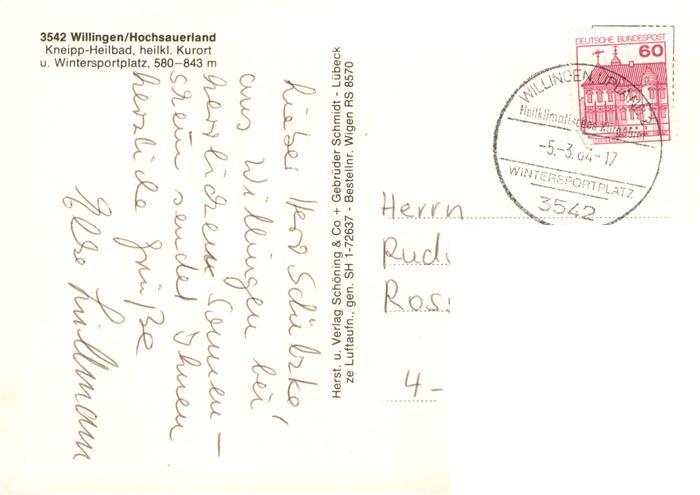 3542 Willingen/Hochsauerland
Kneipp-Heilbad, heilkl. Kurort
u. Wintersportplatz, 580–843 m
Lieber Herr Schulzke,
aus Willingen bei
herrlichem Sonnen–
schein sendet Ihnen
herzliche Grüße
Herst. u. Verlag Schöning & Co + Gebrüder Schmidt - Lübeck
ze Luftaufn., gen. SH 1-72637 - Bestellnr. Wigen RS 8570
DEUTSCHE BUNDESPOST
60
WILLINGEN, UPLAND
Heilklimatischer Kurort
-5.-3.84-17
WINTERSPORTPLATZ
3542
Herrn
4-